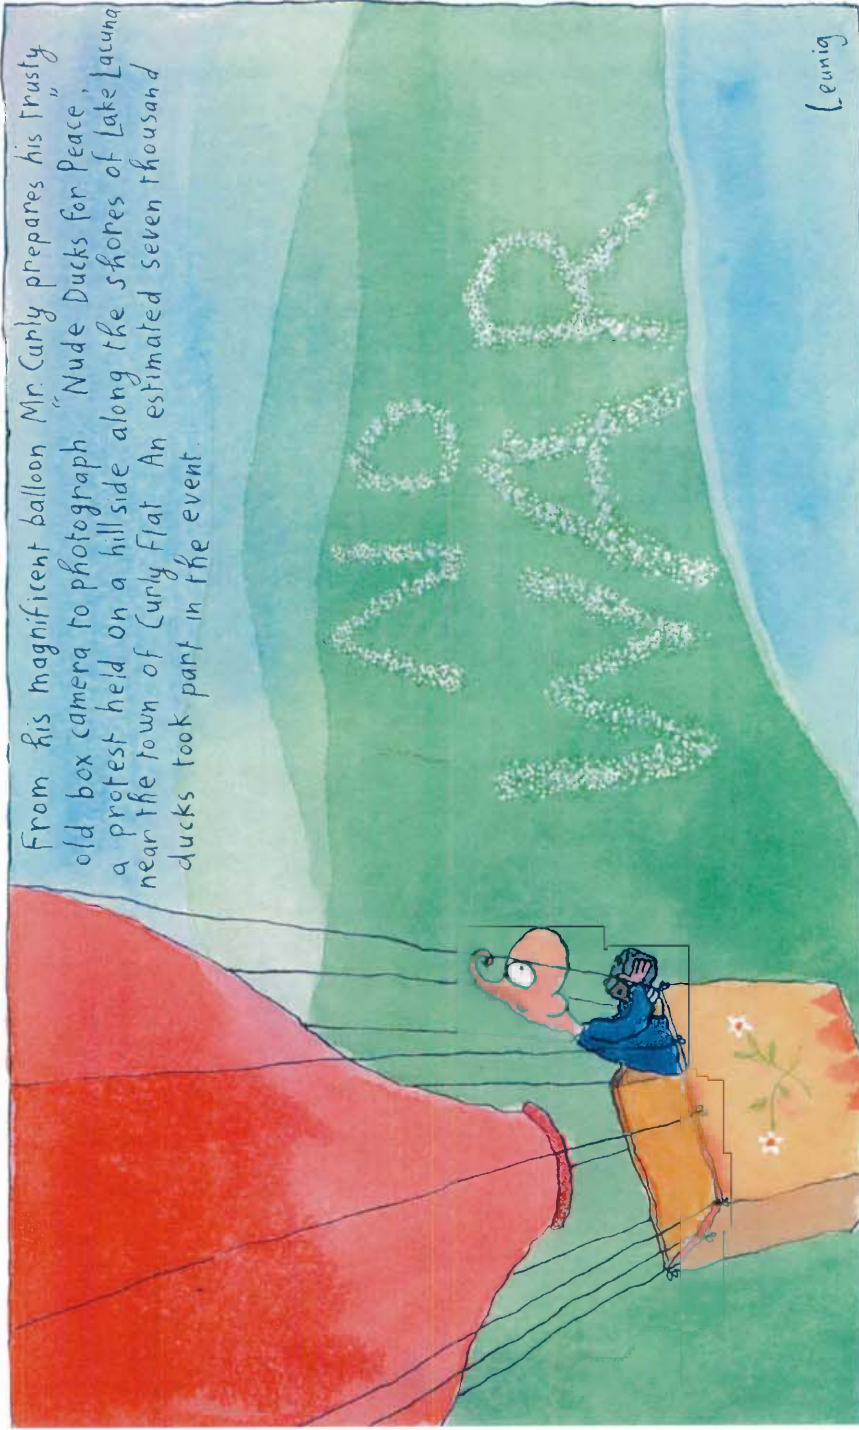 From his magnificent balloon Mr. Curly prepares his trusty
old box camera to photograph "Nude Ducks for Peace",
a protest held on a hillside along the shores of Lake Lacuna
near the town of Curly Flat. An estimated seven thousand
ducks took part in the event.
NO
WAR
Leunig